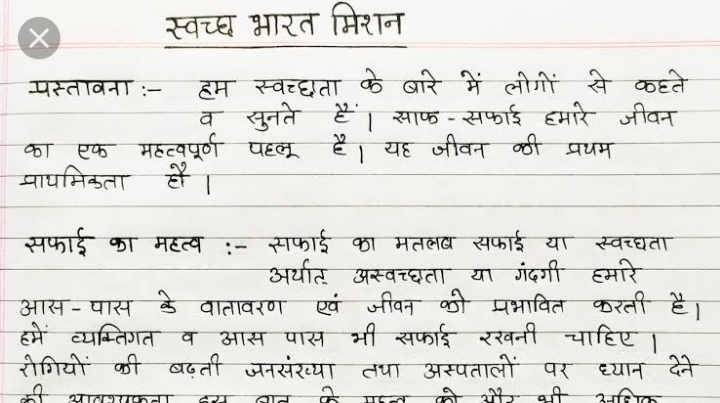 स्वच्छ भारत मिशन
प्रस्तावना :- हम स्वच्छता के बारे में लोगों से कहते
व सुनते हैं। साफ-सफाई हमारे जीवन
का एक महत्वपूर्ण पहलू है। यह जीवन की प्रथम
प्राथमिकता है।
सफाई का महत्व :- सफाई का मतलब सफाई या स्वच्छता
अर्थात् अस्वच्छता या गंदगी हमारे
आस-पास के वातावरण एवं जीवन को प्रभावित करती है।
हमें व्यक्तिगत व आस पास भी सफाई रखनी चाहिए।
रोगियों की बढ़ती जनसंख्या तथा अस्पतालों पर ध्यान देने
की आवश्यकता इस बात के महत्व को और भी अधिक